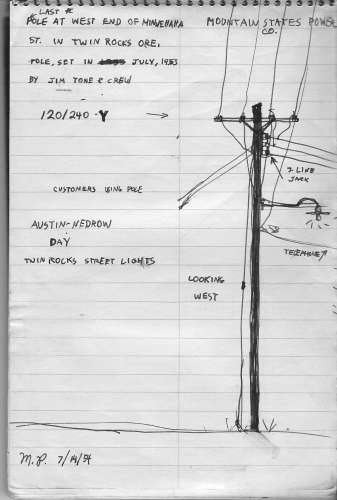 LAST
POLE AT WEST END OF MINNEHAHA
ST. IN TWIN ROCKS ORE.
POLE, SET IN JULY, 1953
BY JIM TONE & CREW
MOUNTAIN STATES POWER
CO.
120/240 Y
LINE
JACK
CUSTOMERS USING POLE
AUSTIN-NEDROW
DAY
TWIN ROCKS STREET LIGHTS
TELEPHONE
LOOKING
WEST
M.P. 7/14/54